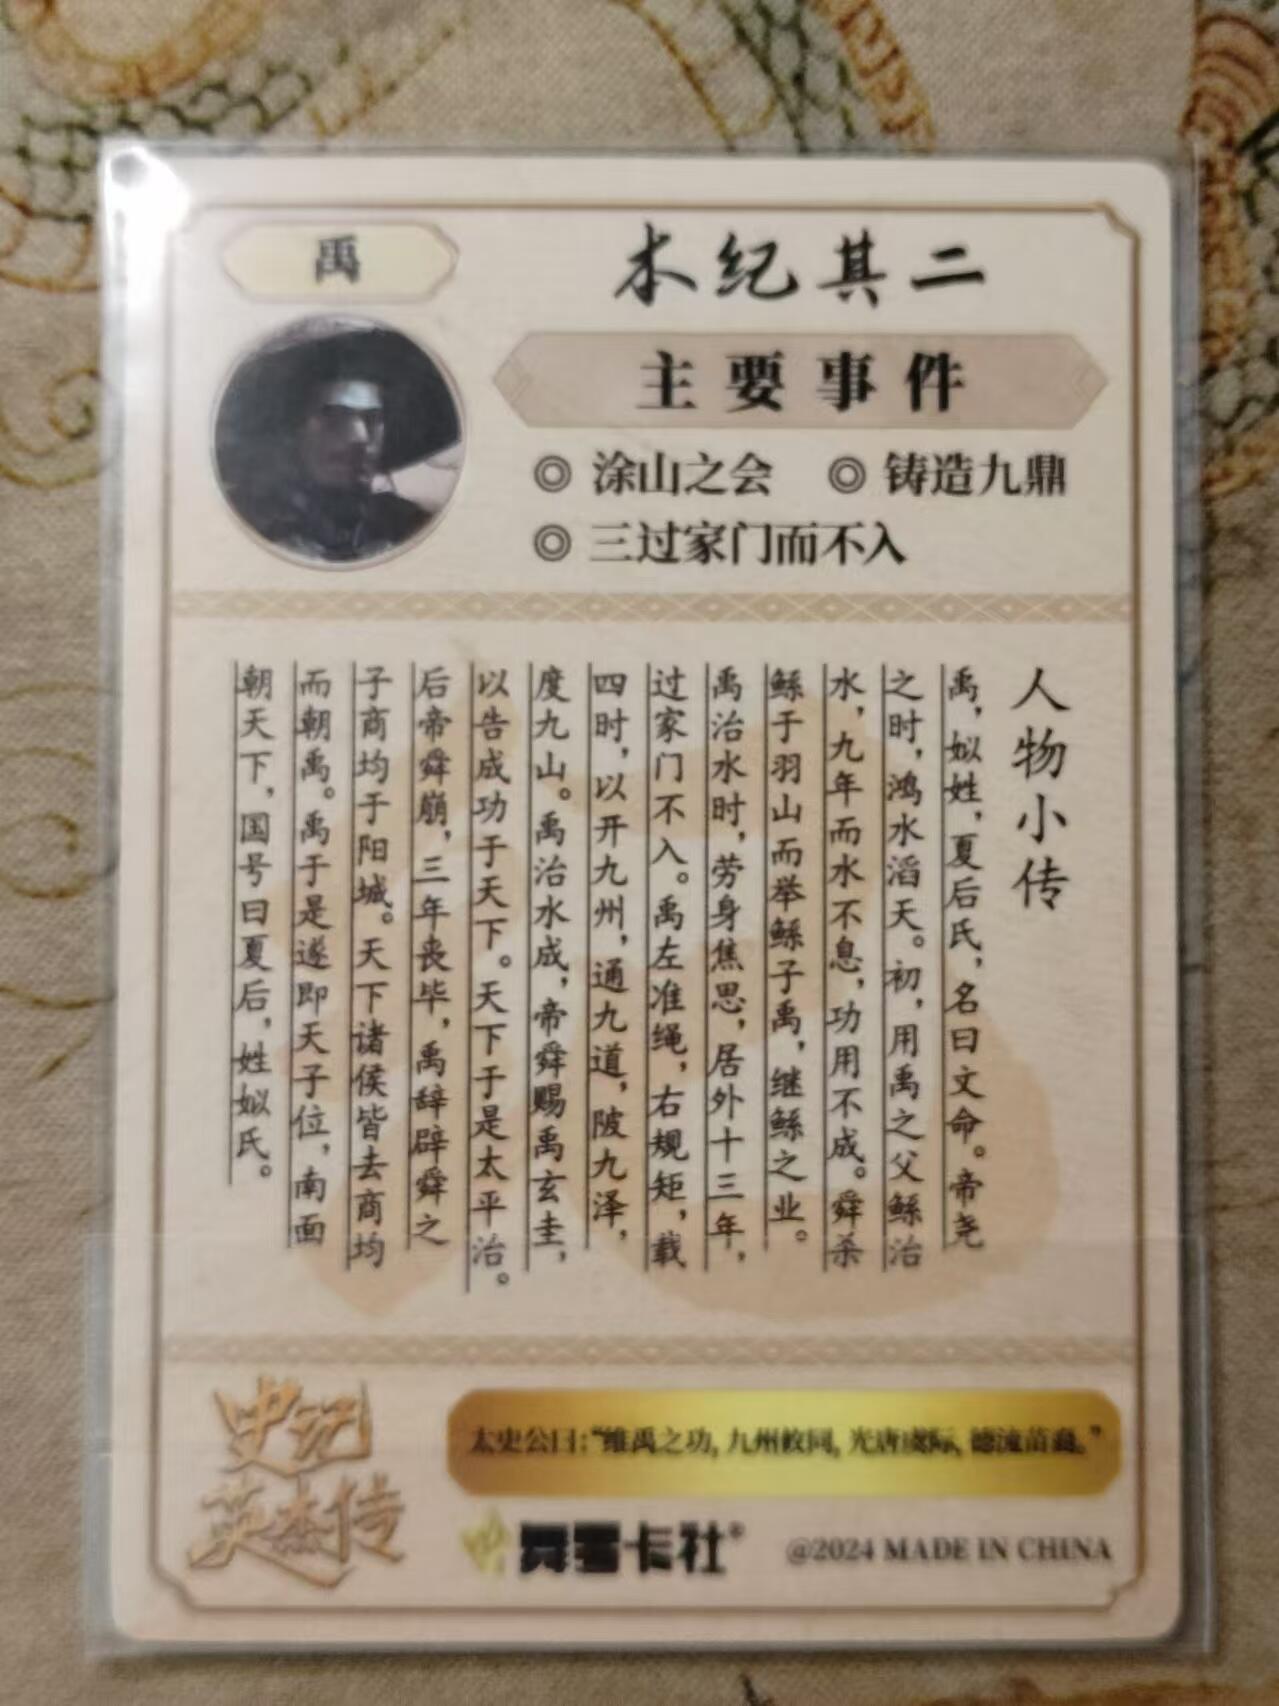 禹
本纪其二
主要事件
◎ 涂山之会 ◎ 铸造九鼎
◎ 三过家门而不入
人物小传
禹，姒姓，夏后氏，名曰文命。帝尧
之时，鸿水滔天。初，用禹之父鲧治
水，九年而水不息，功用不成。舜杀
鲧于羽山而举鲧子禹，继鲧之业。
禹治水时，劳身焦思，居外十三年，
过家门不入。禹左准绳，右规矩，载
四时，以开九州，通九道，陂九泽，
度九山。禹治水成，帝舜赐禹玄圭，
以告成功于天下。天下于是太平治。
后帝舜崩，三年丧毕，禹辞辟舜之
子商均于阳城。天下诸侯皆去商均
而朝禹。禹于是遂即天子位，南面
朝天下，国号曰夏后，姓姒氏。
史记
英杰传
太史公曰：“维禹之功，九州攸同，光唐虞际，德流苗裔。”
卡社®
@2024 MADE IN CHINA